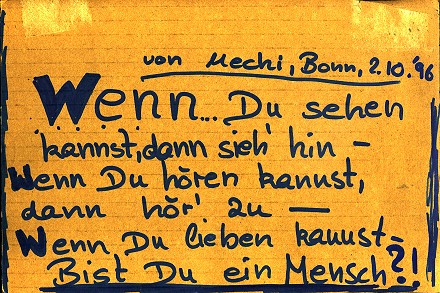 von Mechi, Bonn, 2.10.'96
Wenn... Du sehen
kannst, dann sieh' hin –
Wenn Du hören kannst,
dann hör' zu —
Wenn Du lieben kannst –
Bist Du ein Mensch?!